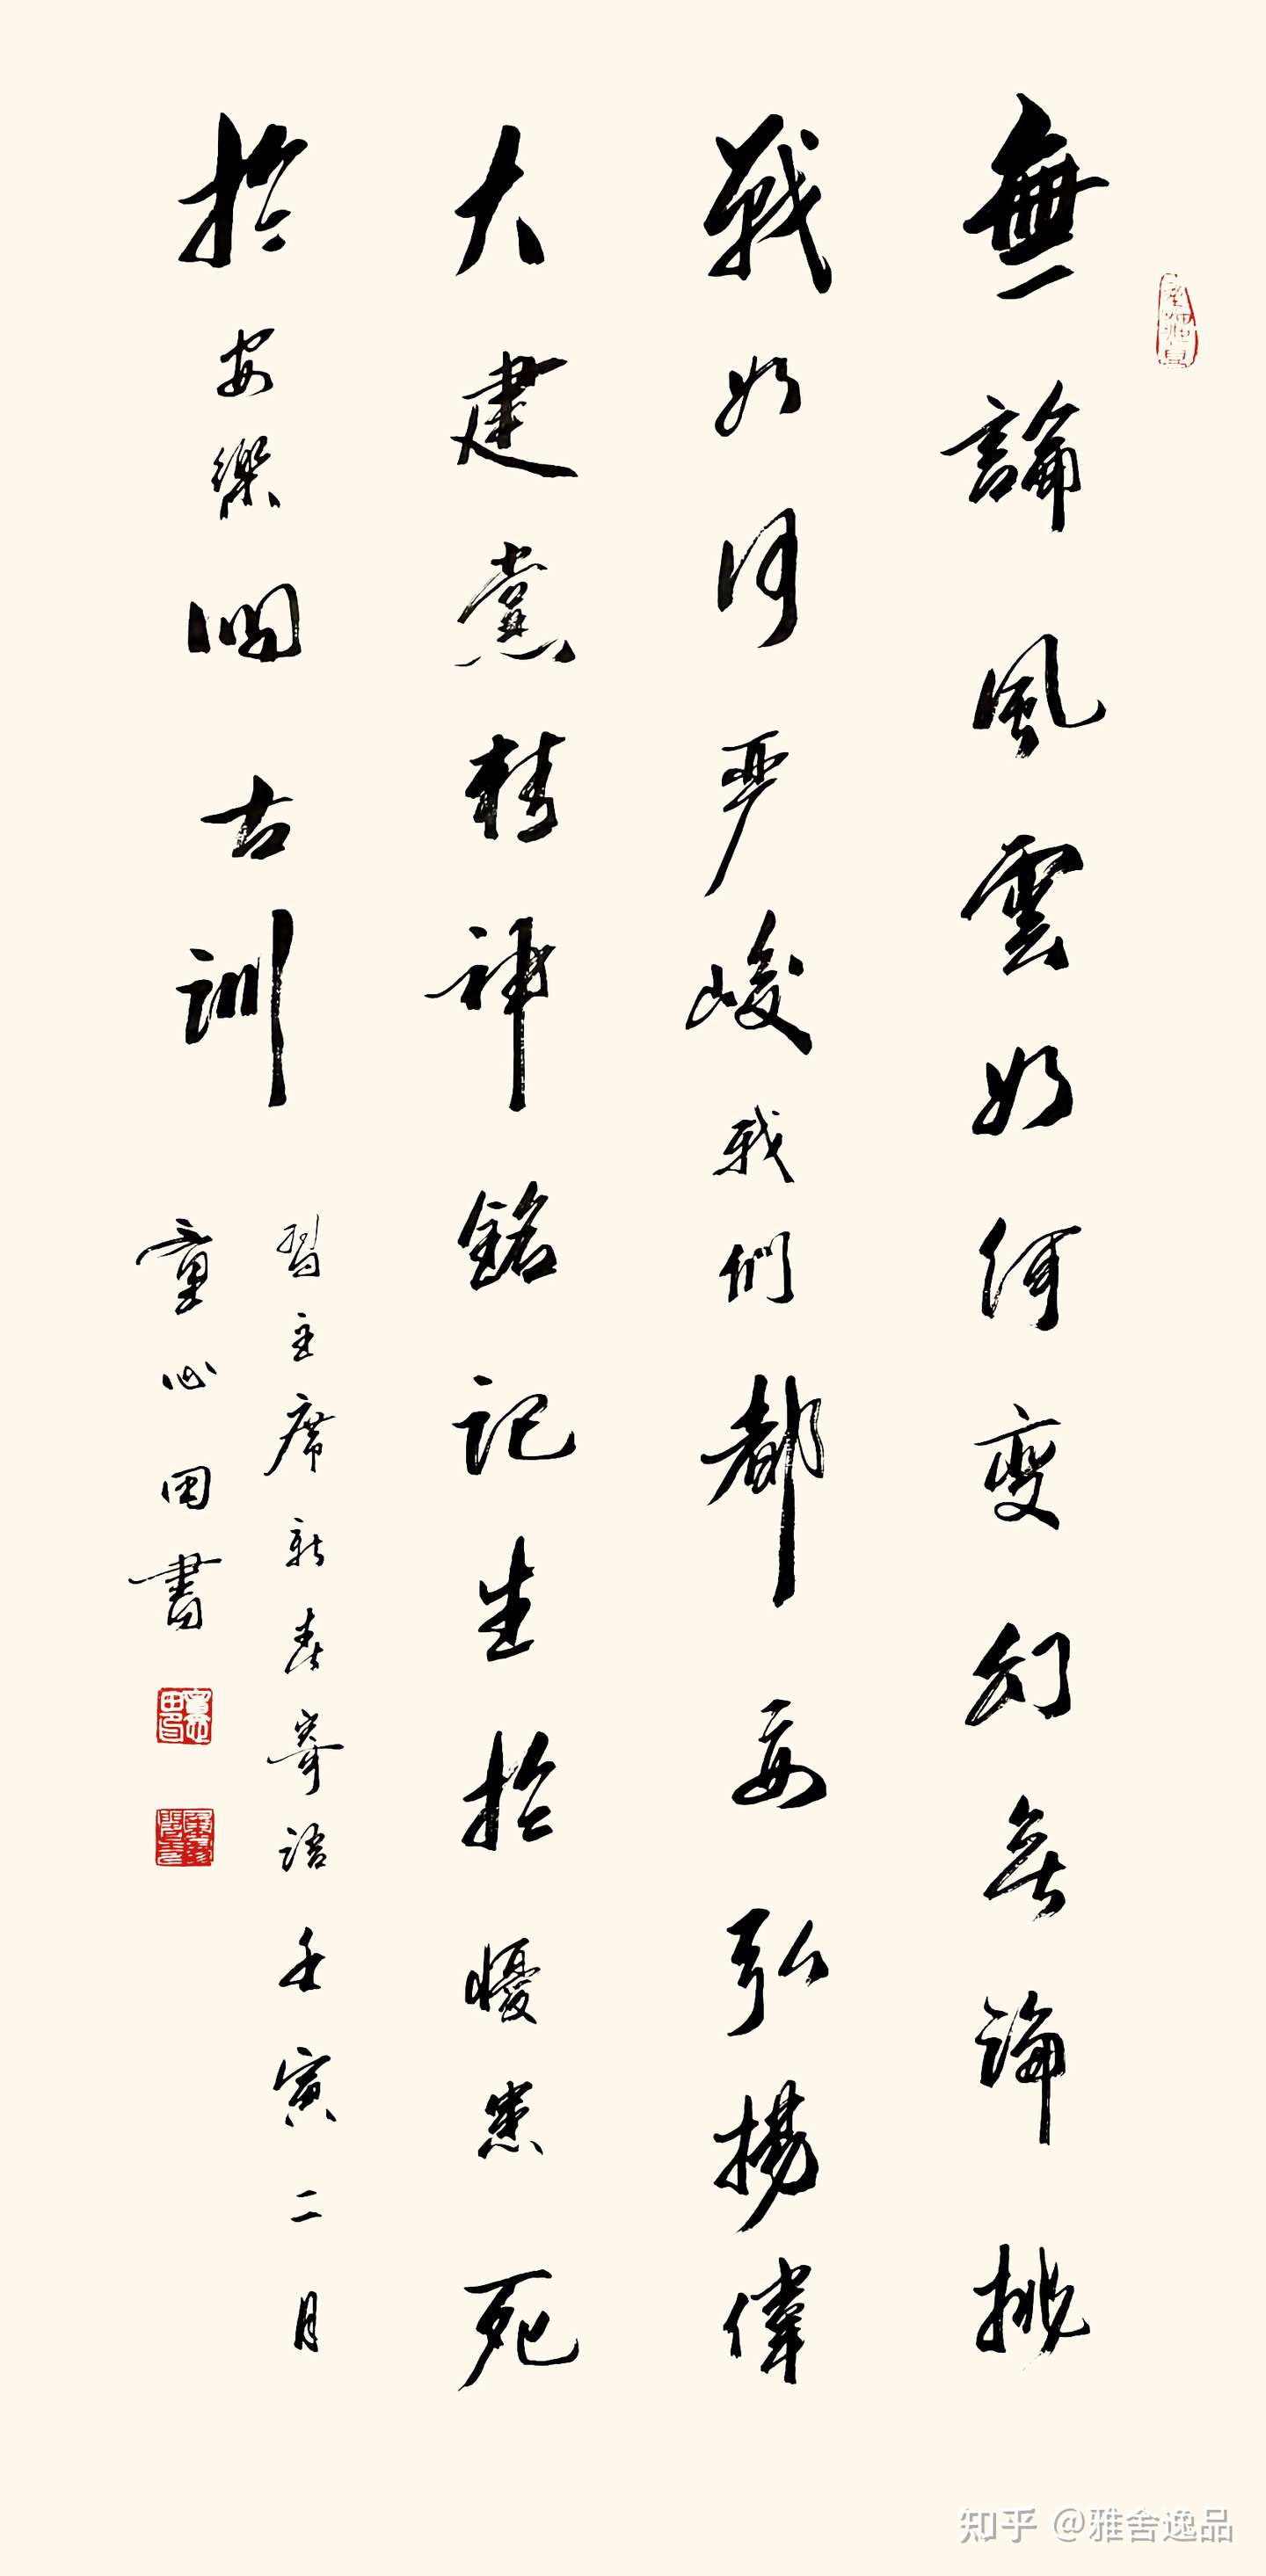 無論風雲如何变幻无論挑
戰如何严峻我們都要弘揚偉
大建党精神銘記生於憂患死
於安樂的古訓
習主席新春寄語壬寅二月
童心田書
知乎 @雅舍逸品